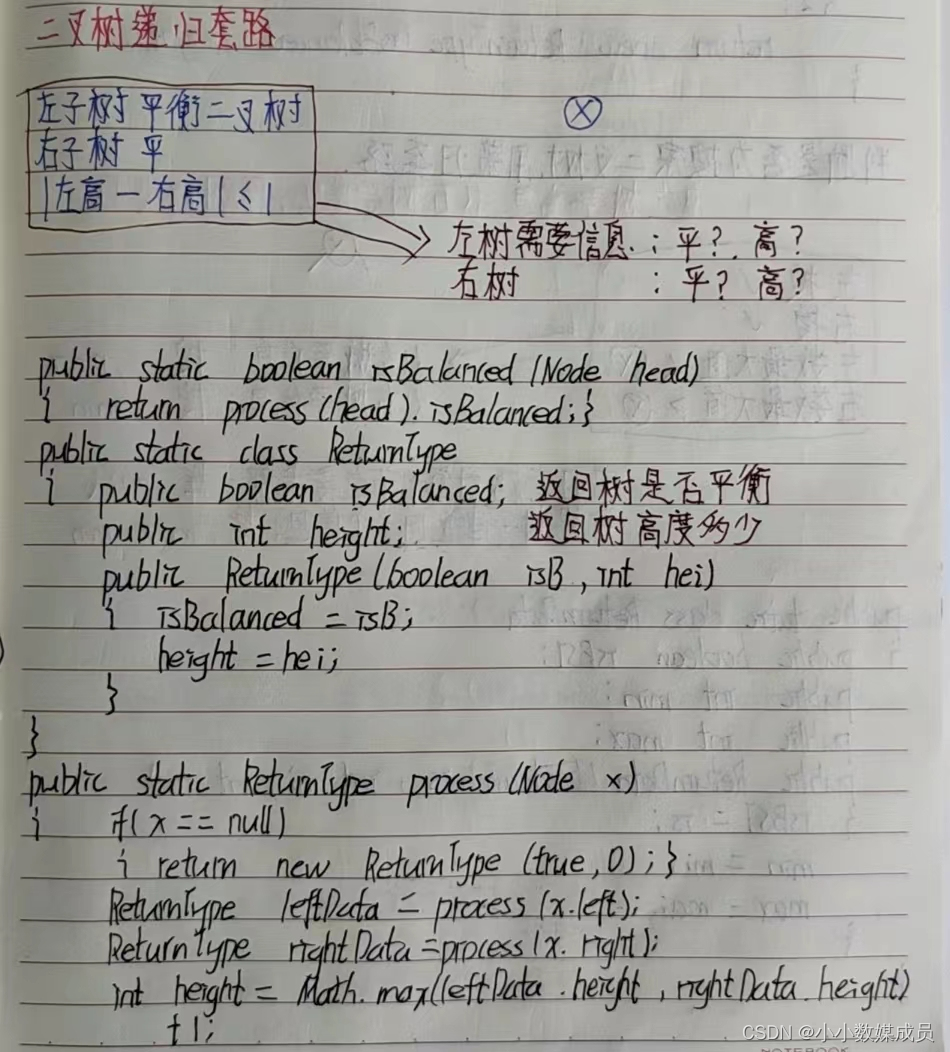 二叉树递归套路
左子树 平衡二叉树
右子树 平
|左高 — 右高| ≤ 1
X
左树需要信息 : 平? 高?
右树 : 平? 高?
public static boolean isBalanced (Node head)
{ return process(head). isBalanced; }
public static class ReturnType
{ public boolean isBalanced; 返回树是否平衡
public int height; 返回树高度多少
public ReturnType (boolean isB , int hei)
{ isBalanced = isB;
height = hei;
}
}
public static ReturnType process (Node x)
{ if( x == null)
{ return new ReturnType (true, 0) ; }
ReturnType leftData = process (x.left);
ReturnType rightData = process (x. right);
int height = Math. max(leftData . height , rightData. height)
+1;
CSDN @小小数媒成员